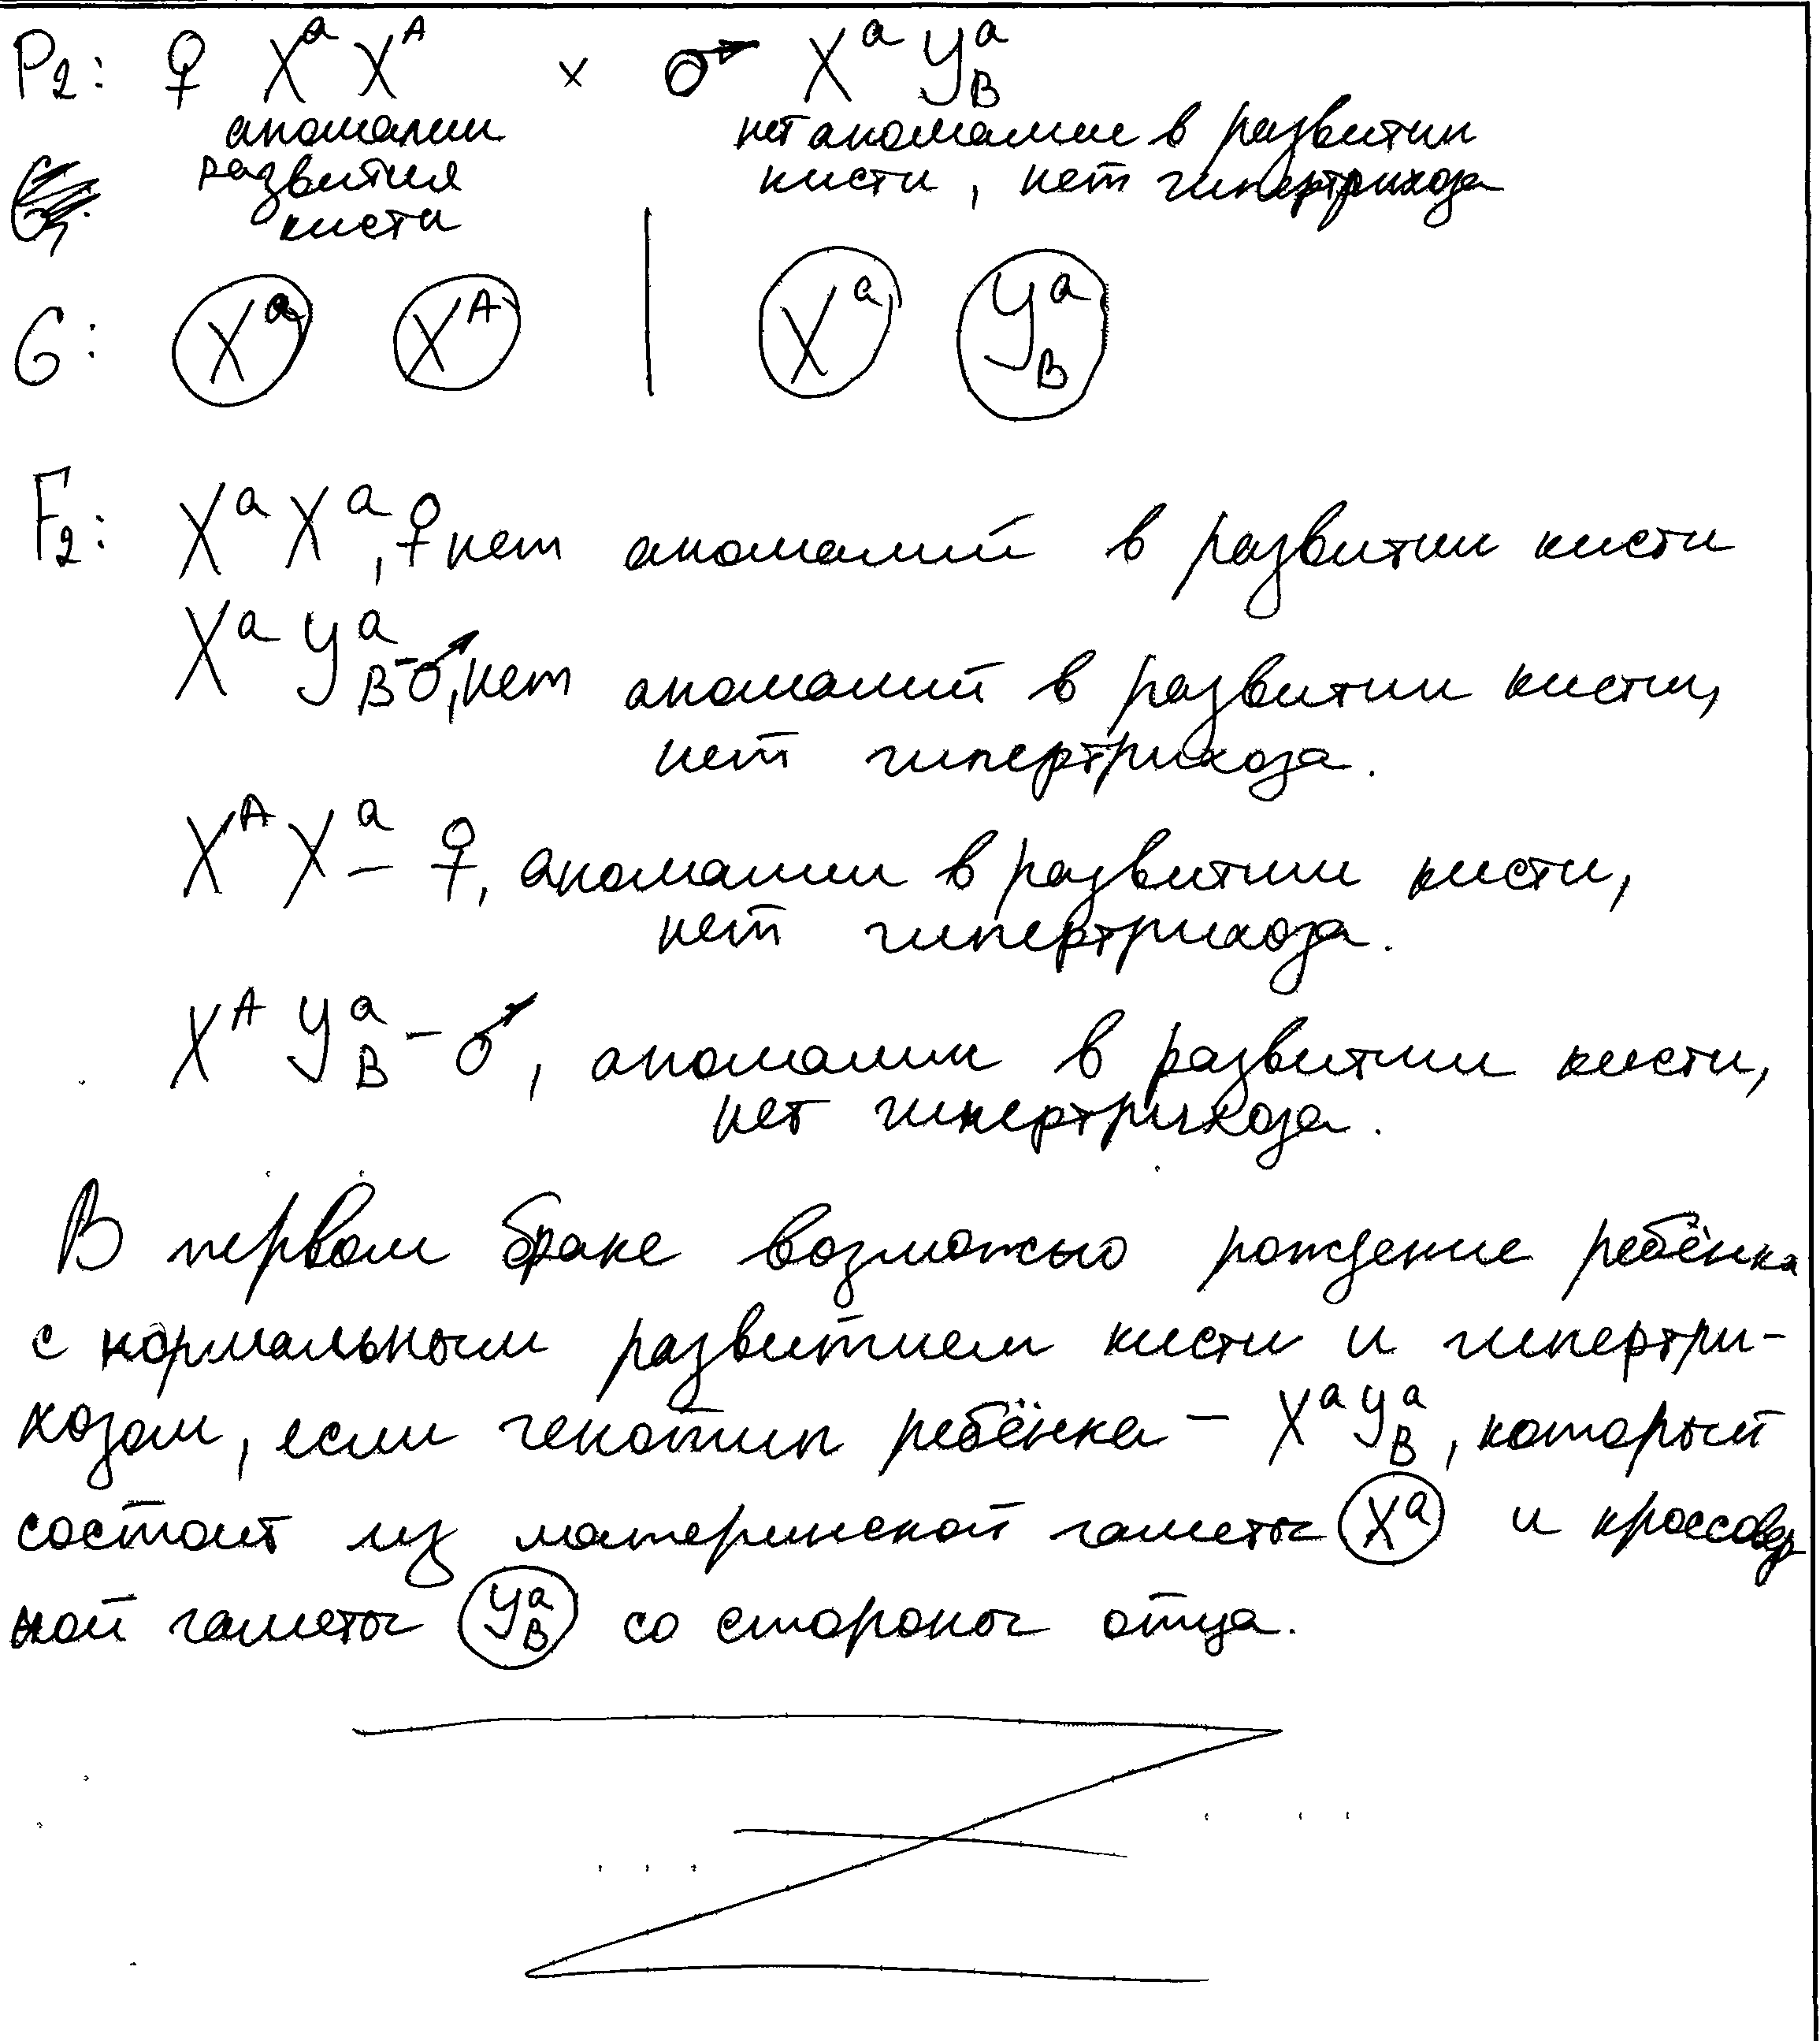 P₂: ♀ XᵃXᴬ × ♂ XᵃYᵃ_B
аномалии нет аномалии в развитии
развития кисти, нет гипертрихоза
кисти
G: Xᵃ Xᴬ | Xᵃ Yᵃ_B
F₂: XᵃXᵃ, ♀ нет аномалий в развитии кисти
XᵃYᵃ_B - ♂, нет аномалий в развитии кисти,
нет гипертрихоза.
XᴬXᵃ - ♀, аномалии в развитии кисти,
нет гипертрихоза.
XᴬYᵃ_B - ♂, аномалии в развитии кисти,
нет гипертрихоза.
В первом браке возможно рождение ребёнка
с нормальным развитием кисти и гипертри-
хозом, если генотип ребёнка - XᵃYᵃ_B, который
состоит из материнской гаметы Xᵃ и кроссовер
ной гаметы Yᵃ_B со стороны отца.